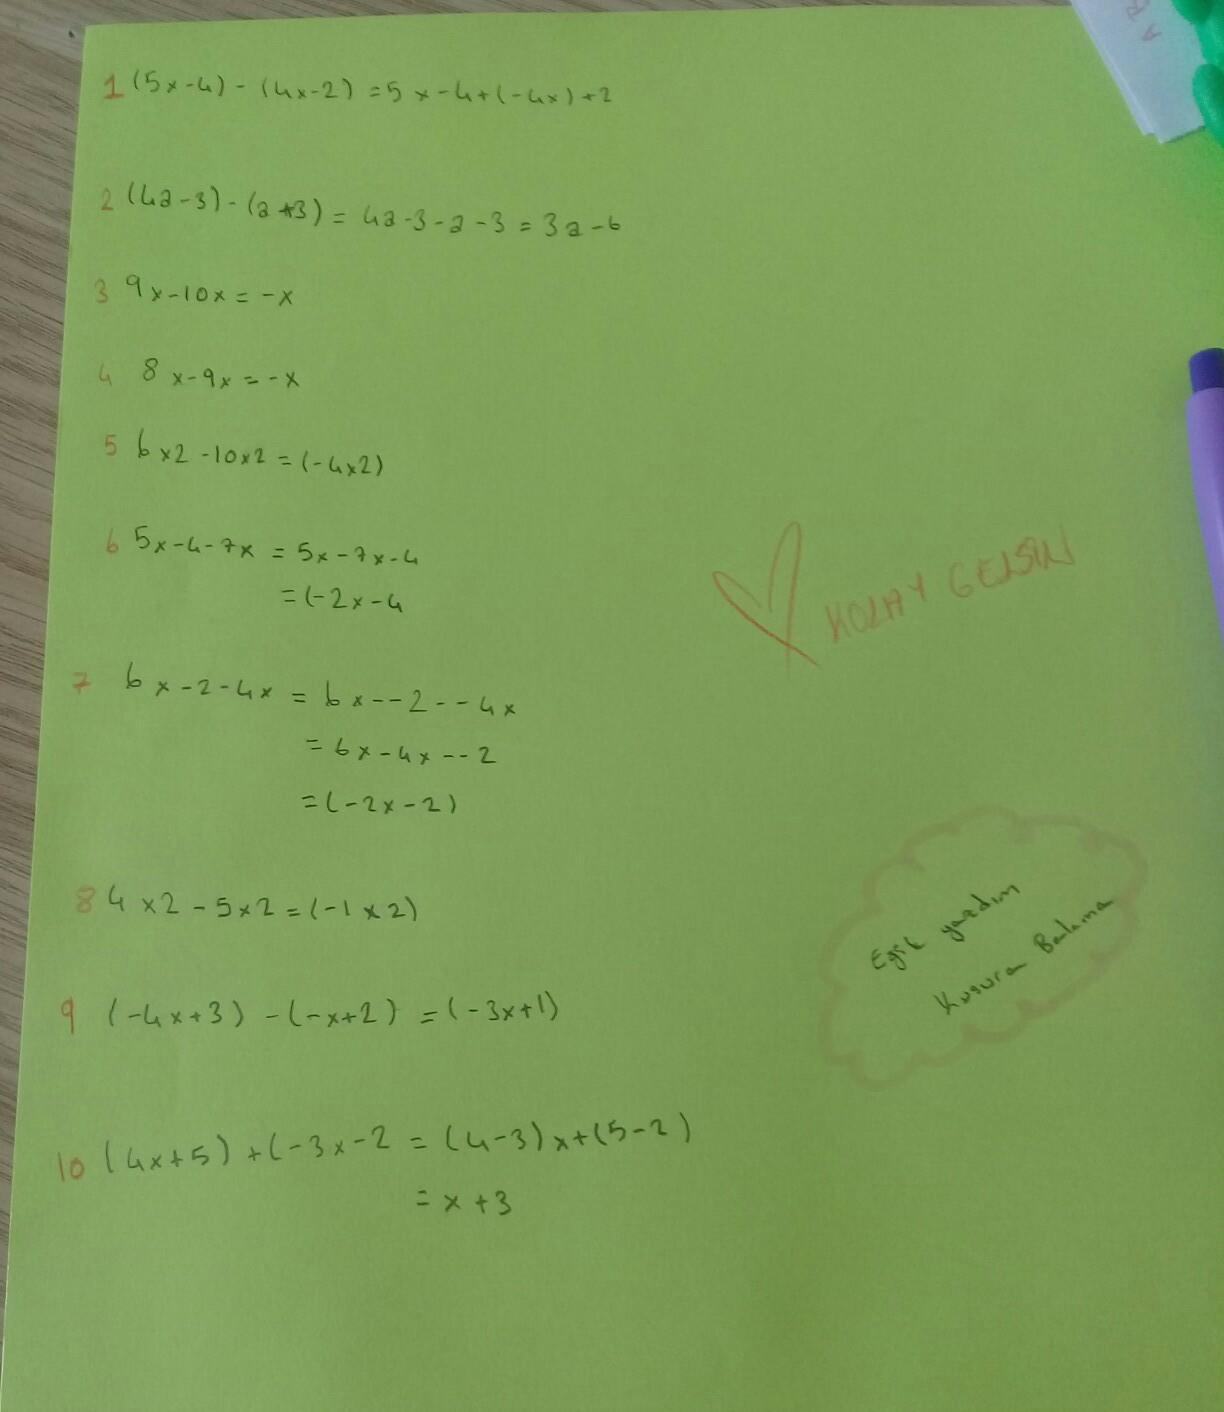 1 (5x-4) - (4x-2) = 5x-4+(-4x)+2
2 (4a-3) - (a+3) = 4a-3-a-3 = 3a-6
3 9x-10x = -x
4 8x-9x = -x
5 6x2 -10x2 = (-4x2)
6 5x-4-7x = 5x-7x-4
= (-2x-4
7 6x-2-4x = 6x--2--4x
= 6x-4x--2
= (-2x-2)
8 4x2 - 5x2 = (-1x2)
9 (-4x+3) - (-x+2) = (-3x+1)
10 (4x+5) + (-3x-2 = (4-3)x+(5-2)
= x+3
KOLAY GELSİN
Eğik yazdım
Kusura Bakma